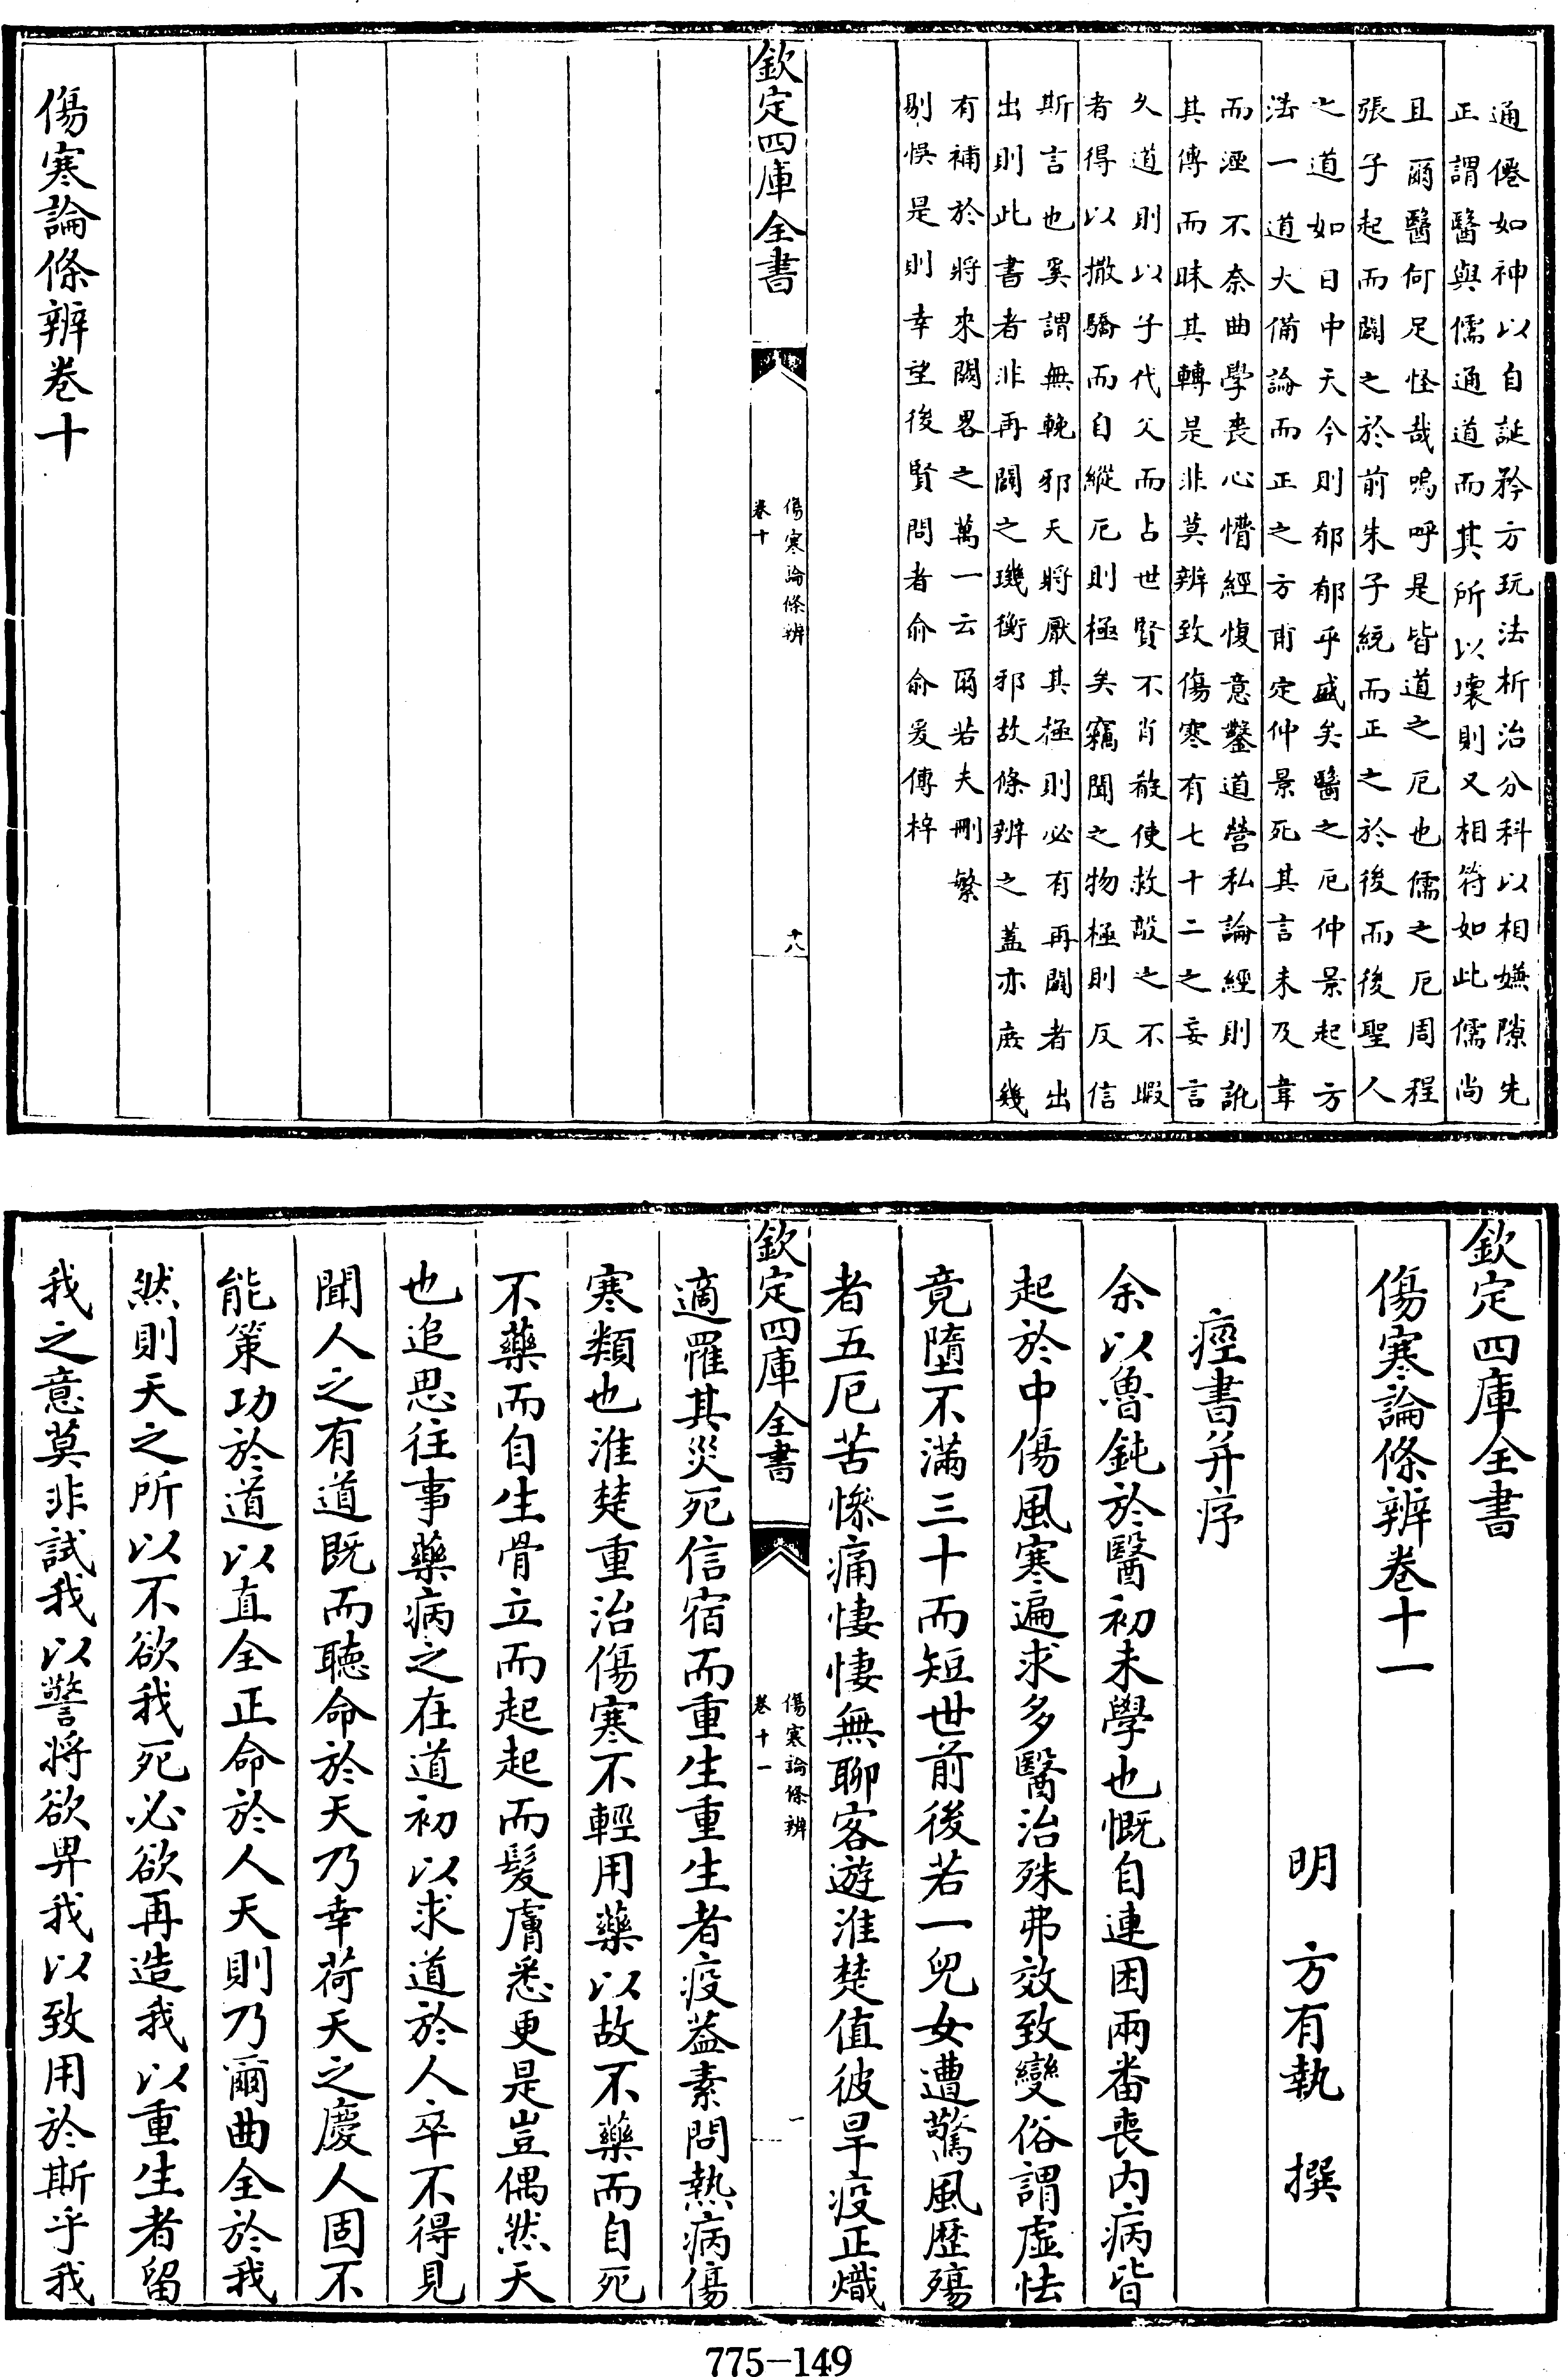 通僊如神以自誕矜方玩法析治分科以相嫌隙先
正謂醫與儒通道而其所以壞則又相符如此儒尚
且爾醫何足怪哉嗚呼是皆道之厄也儒之厄周程
張子起而闢之於前朱子統而正之於後而後聖人
之道如日中天今則郁郁乎盛矣醫之厄仲景起方
法一道大備論而正之方甫定仲景死其言未及韋
而湮不奈曲學喪心懵經愎意鑿道營私論經則訛
其傳而昧其轉是非莫辨致傷寒有七十二之妄言
久道則以子代父而占世賢不肖殽使救敲之不暇
者得以撒驕而自縱厄則極矣竊聞之物極則反信
斯言也奚謂無輓邪天將厭其極則必有再闢者出
出則此書者非再闢之璣衡邪故條辨之蓋亦庶幾
有補於將來闕畧之萬一云爾若夫刪繁
剔悞是則幸望後賢問者俞俞爰傳梓
欽定四庫全書
傷寒論條辨
卷十
十八
傷寒論條辨卷十
欽定四庫全書
傷寒論條辨卷十一
明 方有執 撰
痙書并序
余以魯鈍於醫初未學也慨自連困兩番喪內病皆
起於中傷風寒遍求多醫治殊弗效致變俗謂虛怯
竟墮不滿三十而短世前後若一兒女遭驚風歷殤
者五厄苦慘痛悽悽無聊客遊淮楚值彼旱疫正熾
欽定四庫全書
傷寒論條辨
卷十一
一
適罹其災死信宿而重生重生者疫葢素問熱病傷
寒類也淮楚重治傷寒不輕用藥以故不藥而自死
不藥而自生骨立而起起而髮膚悉更是豈偶然天
也追思往事藥病之在道初以求道於人卒不得見
聞人之有道既而聽命於天乃幸荷天之慶人固不
能策功於道以直全正命於人天則乃爾曲全於我
然則天之所以不欲我死必欲再造我以重生者留
我之意莫非試我以警將欲畀我以致用於斯乎我
775-149